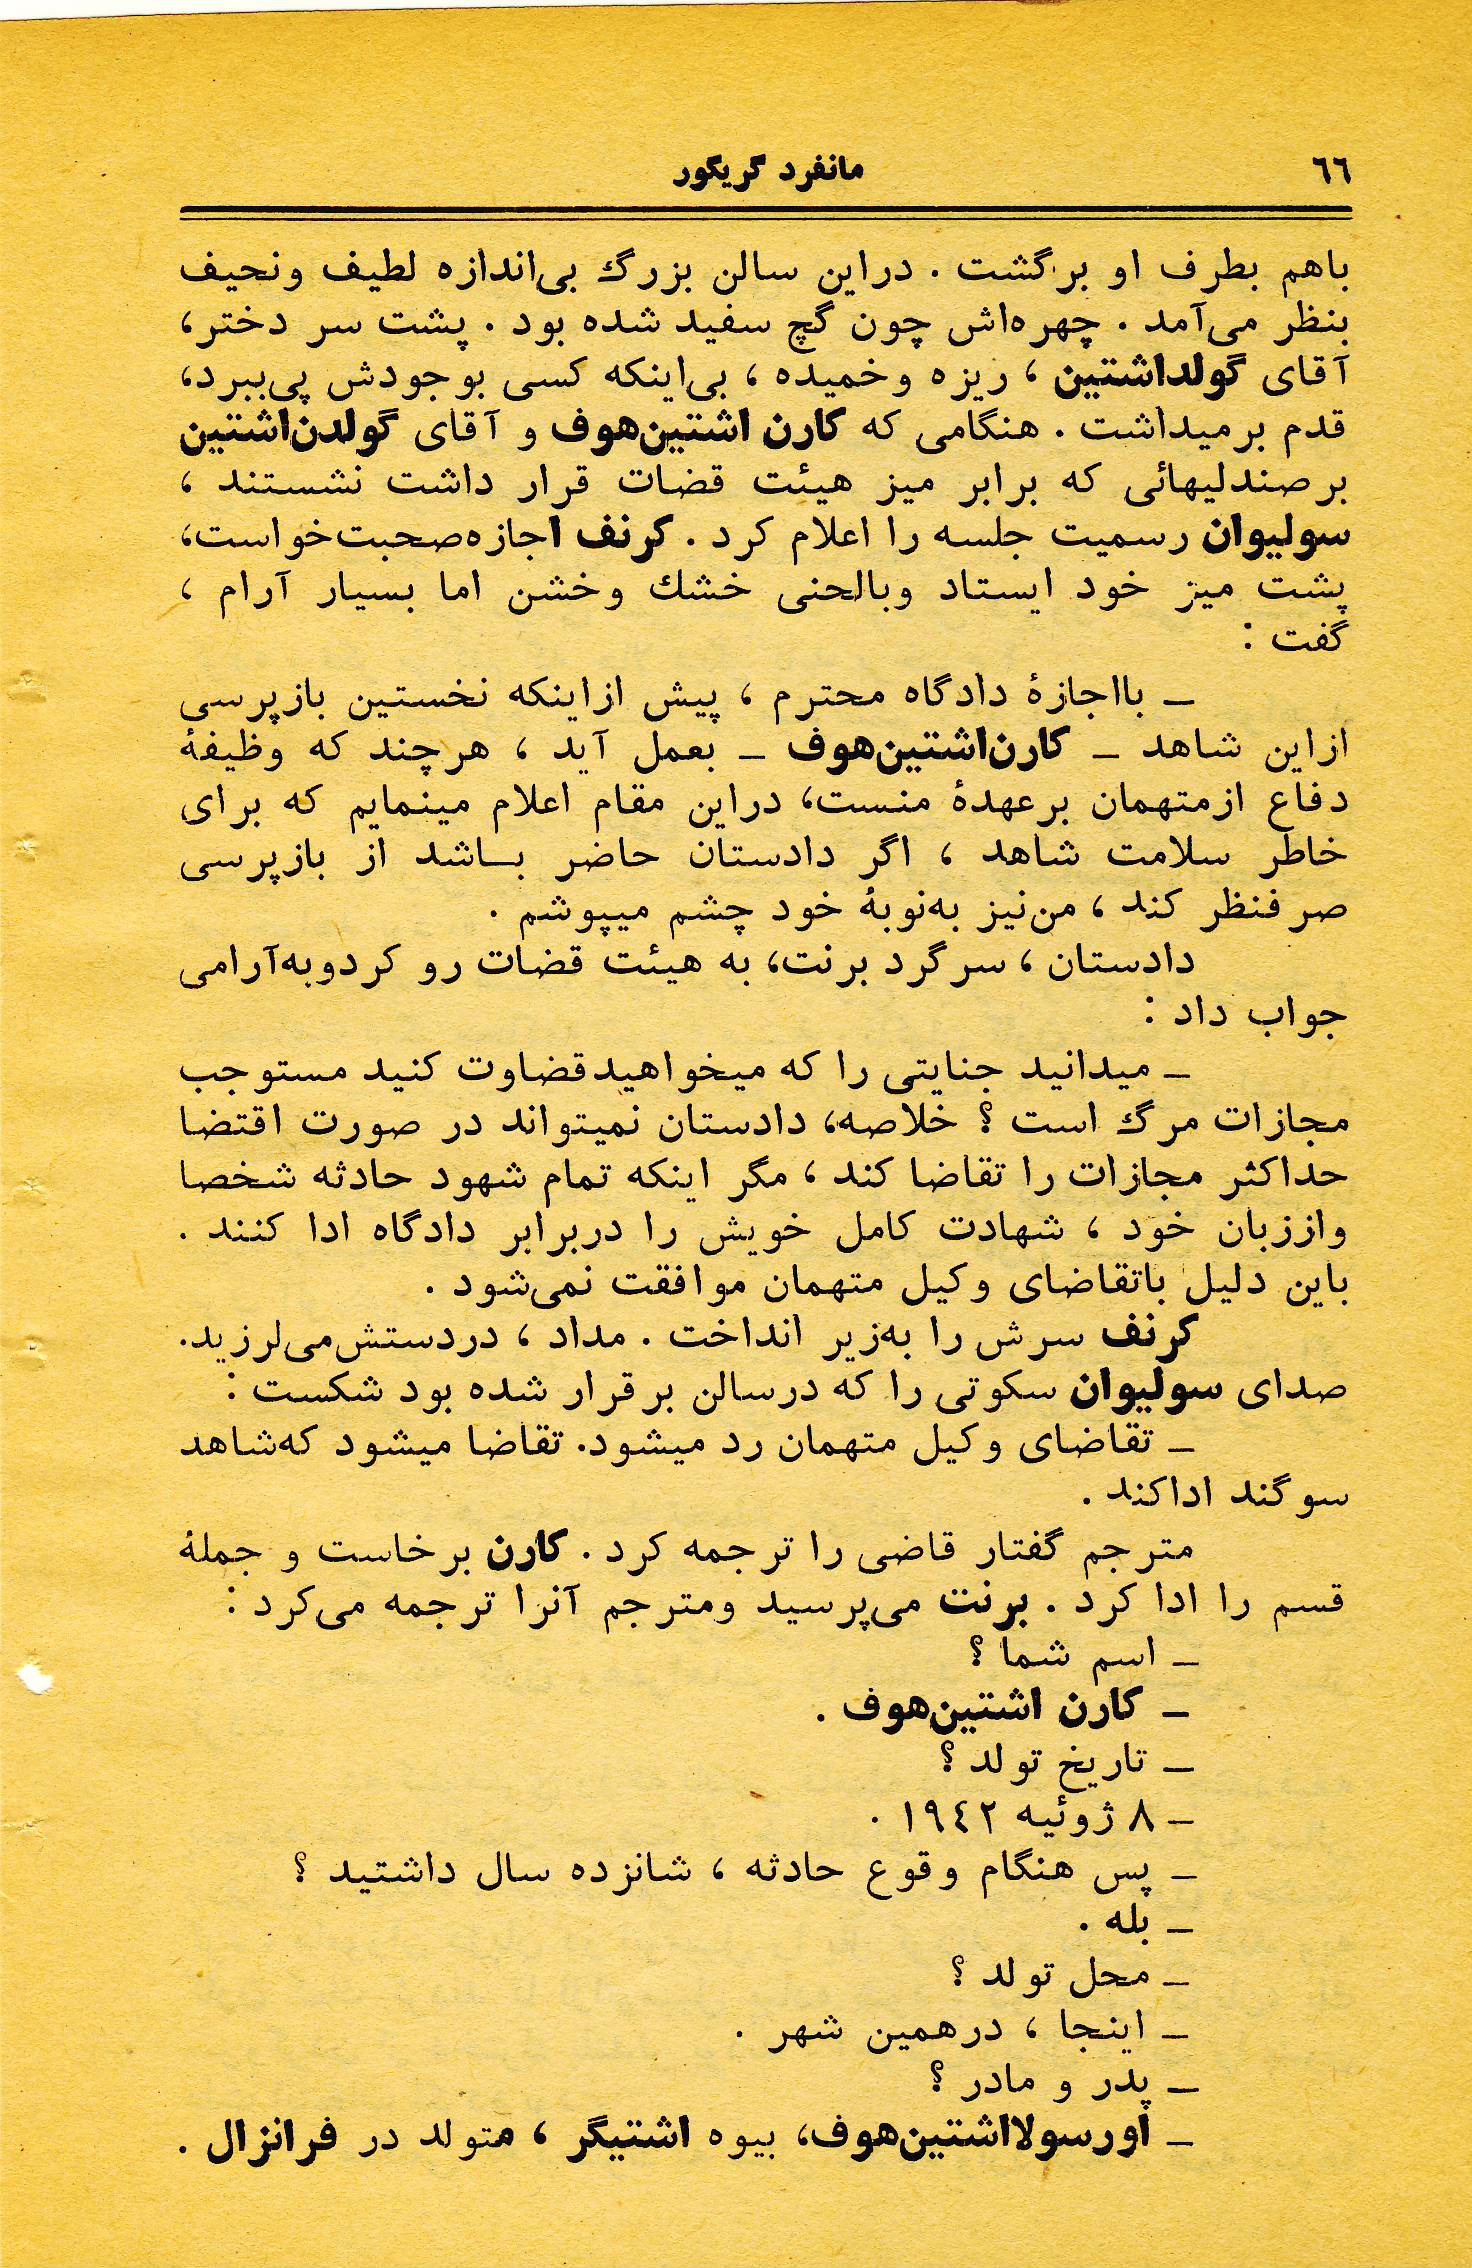 ٦٦ مانفرد گریگور
باهم بطرف او برگشت . دراین سالن بزرگ بی‌اندازه لطیف ونحیف
بنظر می‌آمد . چهره‌اش چون گچ سفید شده بود . پشت سر دختر،
آقای گولداشتین ، ریزه وخمیده ، بی‌اینکه کسی بوجودش پی‌ببرد،
قدم برمیداشت . هنگامی که کارن اشتین‌هوف و آقای گولدن‌اشتین
برصندلیهائی که برابر میز هیئت قضات قرار داشت نشستند ،
سولیوان رسمیت جلسه را اعلام کرد . کرنف اجازه‌صحبت‌خواست،
پشت میز خود ایستاد وبالحنی خشك وخشن اما بسیار آرام ،
گفت :
ــ بااجازهٔ دادگاه محترم ، پیش ازاینکه نخستین بازپرسی
ازاین شاهد ــ کارن‌اشتین‌هوف ــ بعمل آید ، هرچند که وظیفهٔ
دفاع ازمتهمان برعهدهٔ منست، دراین مقام اعلام مینمایم که برای
خاطر سلامت شاهد ، اگر دادستان حاضر باشد از بازپرسی
صرفنظر کند ، من‌نیز به‌نوبهٔ خود چشم میپوشم .
دادستان ، سرگرد برنت، به هیئت قضات رو کردوبه‌آرامی
جواب داد :
ــ میدانید جنایتی را که میخواهیدقضاوت کنید مستوجب
مجازات مرگ است ؟ خلاصه، دادستان نمیتواند در صورت اقتضا
حداکثر مجازات را تقاضا کند ، مگر اینکه تمام شهود حادثه شخصا
واززبان خود ، شهادت کامل خویش را دربرابر دادگاه ادا کنند .
باین دلیل باتقاضای وکیل متهمان موافقت نمی‌شود .
کرنف سرش را به‌زیر انداخت . مداد ، دردستش‌می‌لرزید.
صدای سولیوان سکوتی را که درسالن برقرار شده بود شکست :
ــ تقاضای وکیل متهمان رد میشود. تقاضا میشود که‌شاهد
سوگند اداکند .
مترجم گفتار قاضی را ترجمه کرد . کارن برخاست و جملهٔ
قسم را ادا کرد . برنت می‌پرسید ومترجم آنرا ترجمه می‌کرد :
ــ اسم شما ؟
ــ کارن اشتین‌هوف .
ــ تاریخ تولد ؟
ــ ٨ ژوئیه ١٩٤٢ .
ــ پس هنگام وقوع حادثه ، شانزده سال داشتید ؟
ــ بله .
ــ محل تولد ؟
ــ اینجا ، درهمین شهر .
ــ پدر و مادر ؟
ــ اورسولااشتین‌هوف، بیوه اشتیگر ، متولد در فرانزال .